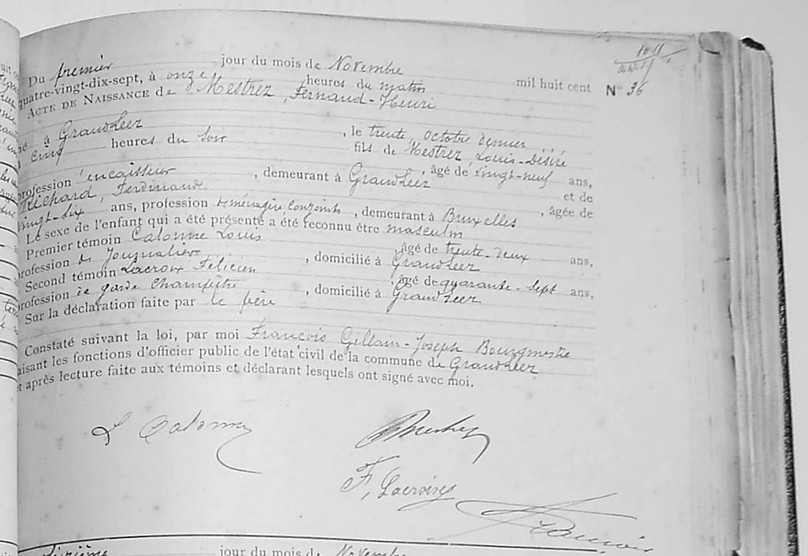 Du premier jour du mois de Novembre mil huit cent N° 36
quatre-vingt-dix-sept, à onze heures du matin
ACTE DE NAISSANCE de Mestrez, Fernand-Henri
né à GrandLeez, le trente octobre dernier
à cinq heures du soir fils de Mestrez, Louis-Désiré
profession d'encaisseur, demeurant à GrandLeez, âgé de vingt-neuf ans,
et de Richard, Ferdinande, âgée de
vingt-six ans, profession de ménagère, conjoints, demeurant à Bruxelles
Le sexe de l'enfant qui a été présenté a été reconnu être masculin
Premier témoin Calonne Louis âgé de trente-deux ans,
profession de Journalier, domicilié à GrandLeez
Second témoin Lacroix Félicien âgé de quarante-sept ans,
profession de garde champêtre, domicilié à GrandLeez
Sur la déclaration faite par le père
Constaté suivant la loi, par moi François Gillain-Joseph Bourgmestre
faisant les fonctions d'officier public de l'état civil de la commune de GrandLeez
et après lecture faite aux témoins et déclarant lesquels ont signé avec moi.
L Calonne
F, Lacroix
jour du mois de Novembre